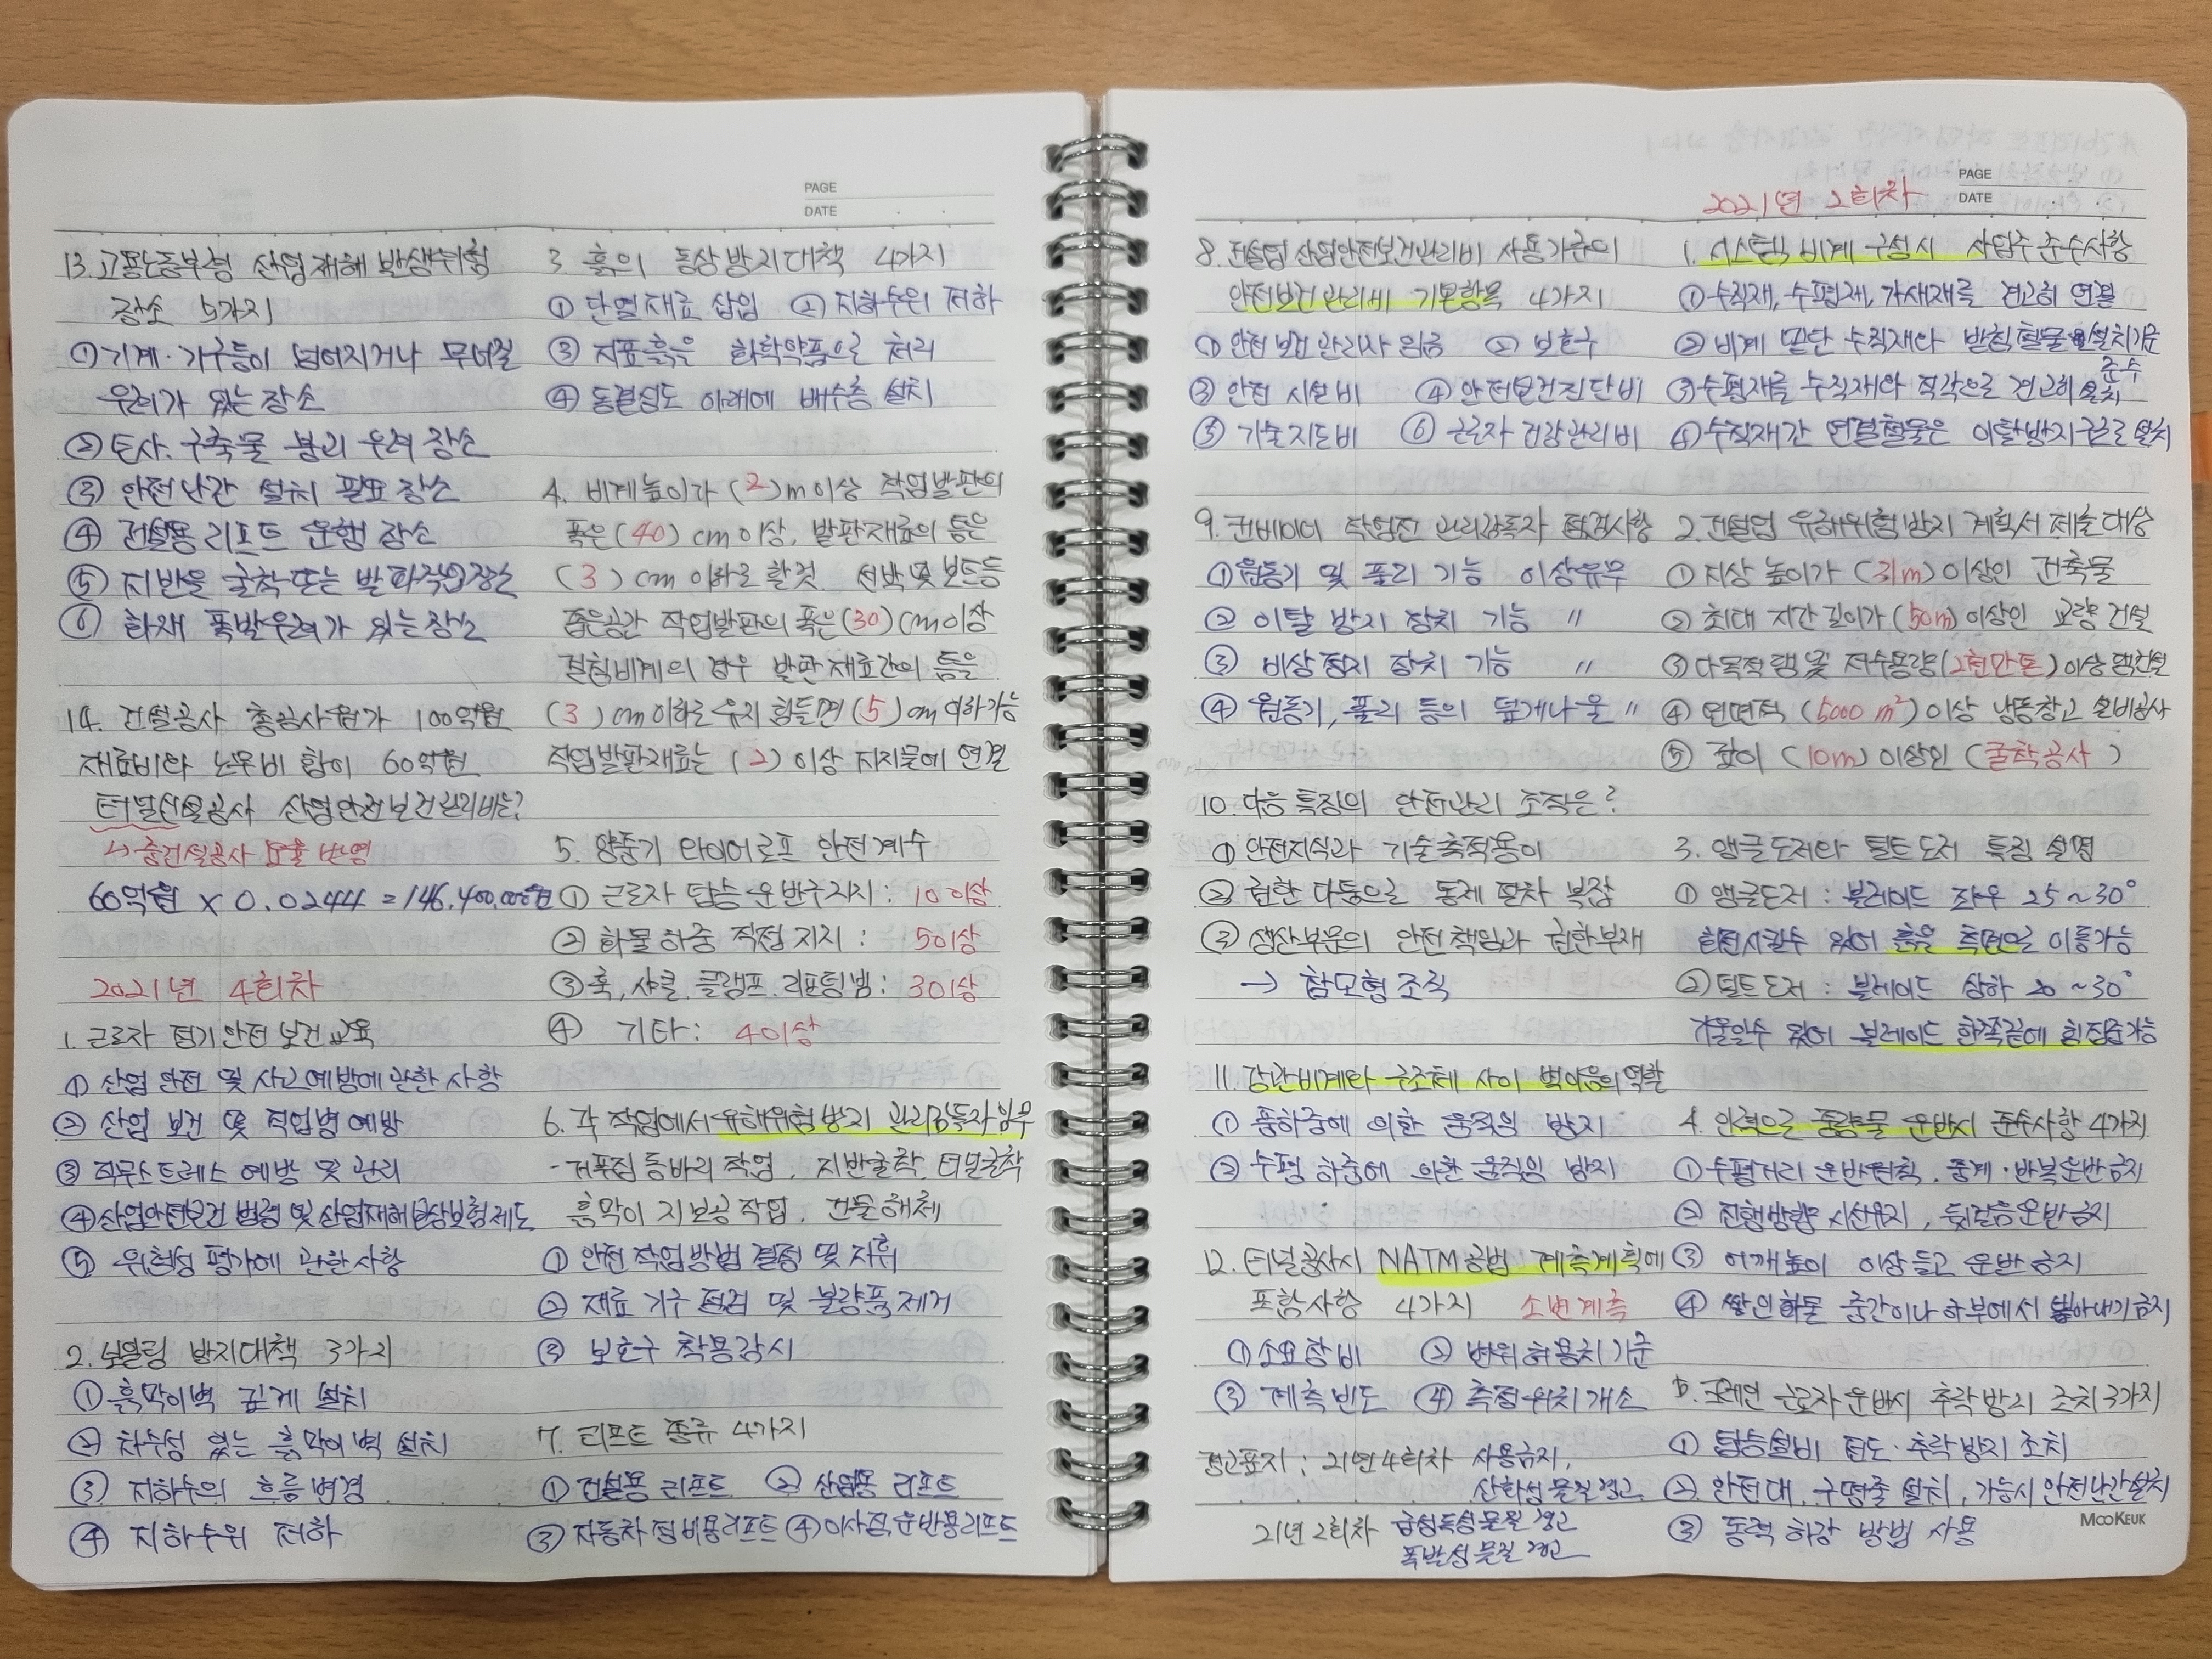 PAGE
DATE
13. 고용노동부령 산업재해 발생위험
장소 5가지
① 기계·기구등이 넘어지거나 무너질
우려가 있는 장소
② 토사·구축물 붕괴 우려 장소
③ 안전난간 설치 필요 장소
④ 건설용 리프트 운행 장소
⑤ 지반을 굴착 또는 발파작업 장소
⑥ 화재 폭발우려가 있는 장소
14. 건설공사 총공사원가 100억원
재료비와 노무비 합이 60억원
터널신설공사 산업안전보건관리비는?
↳ 중건설공사 요율 반영
60억원 × 0.02444 = 146,400,000원
2021년 4회차
1. 근로자 정기안전보건교육
① 산업 안전 및 사고예방에 관한 사항
② 산업 보건 및 직업병 예방
③ 직무스트레스 예방 및 관리
④ 산업안전보건 법령 및 산업재해보상보험제도
⑤ 위험성 평가에 관한 사항
2. 보일링 방지대책 3가지
① 흙막이벽 깊게 설치
② 차수성 있는 흙막이벽 설치
③ 지하수의 흐름변경
④ 지하수위 저하
3 흙의 동상방지대책 4가지
① 단열재료 삽입 ② 지하수위 저하
③ 지표흙은 화학약품으로 처리
④ 동결심도 아래에 배수층 설치
4. 비계높이가 (2)m이상 작업발판의
폭은 (40) cm이상, 발판재료의 틈은
(3) cm 이하로 할것 선박 및 보트등
좁은공간 작업발판의 폭은 (30) cm이상
걸침비계의 경우 발판 재료간의 틈은
(3) cm이하로 유지 힘들면 (5) cm이하가능
작업발판재료는 (2) 이상 지지물에 연결
5. 양중기 와이어로프 안전계수
① 근로자 탑승 운반구지지 : 10 이상
② 화물 하중 직접 지지 : 5이상
③ 훅, 샤클, 클램프, 리프팅빔 : 3이상
④ 기타 : 4이상
6. 각 작업에서 유해위험방지 관리감독자 임무
- 거푸집 동바리 작업, 지반굴착, 터널굴착
흙막이 지보공작업, 건물해체
① 안전작업방법 결정 및 지휘
② 재료 기구 점검 및 불량품 제거
③ 보호구 착용감시
7. 리프트 종류 4가지
① 건설용 리프트 ② 산업용 리프트
③ 자동차정비용리프트 ④ 이삿짐운반용리프트
PAGE
DATE
2021년 2회차
8. 건설업 산업안전보건관리비 사용기준의
안전보건관리비 기본항목 4가지
① 안전보건관리자 임금 ② 보호구
③ 안전 시설비 ④ 안전보건진단비
⑤ 기술지도비 ⑥ 근로자 건강관리비
9. 컨베이어 작업전 관리감독자 점검사항
① 원동기 및 풀리 기능 이상유무
② 이탈 방지 장치 기능 〃
③ 비상정지 장치 기능 〃
④ 원동기, 풀리 등의 덮개나 울 〃
10. 다음 특징의 안전관리 조직은?
① 안전지식과 기술축적용이
② 권한 다툼으로 통제 절차 복잡
③ 생산부문의 안전책임과 권한부재
→ 참모형 조직
11. 강관비계와 구조체 사이 벽이음의 역할
① 풍하중에 의한 움직임 방지
② 수평 하중에 의한 움직임 방지
12. 터널공사시 NATM공법 계측계획에
포함사항 4가지 소변계측
① 소요장비 ② 변위허용치 기준
③ 계측빈도 ④ 측정위치 개소
경고표지 : 21년 4회차 사용금지,
산화성물질경고
21년 2회차 급성독성물질 경고
폭발성물질 경고
1. 시스템 비계 구성시 사업주 준수사항
① 수직재, 수평재, 가새재를 견고히 연결
② 비계 밑단 수직재와 받침철물 설치기준
준수
③ 수평재를 수직재와 직각으로 견고히 설치
④ 수직재간 연결철물은 이탈방지구조로 설치
2. 건설업 유해위험방지 계획서 제출대상
① 지상높이가 (31m) 이상인 건축물
② 최대 지간길이가 (50m) 이상인 교량 건설
③ 다목적댐 및 저수용량 (2천만톤) 이상 댐건설
④ 연면적 (5000㎡) 이상 냉동창고 설비공사
⑤ 깊이 (10m) 이상인 (굴착공사)
3. 앵글도저와 틸트도저 특징 설명
① 앵글도저 : 블레이드 좌우 25~30°
회전시킬수 있어 흙을 측면으로 이동가능
② 틸트도저 : 블레이드 상하 20~30°
기울일수 있어 블레이드 한쪽끝에 힘집중가능
4. 인력으로 중량물 운반시 준수사항 4가지
① 수평거리 운반원칙, 중계·반복운반금지
② 진행방향 시선유지, 뒷걸음운반금지
③ 어깨높이 이상 들고 운반금지
④ 쌓인화물 중간이나 하부에서 뽑아내기금지
5. 크레인 근로자 운반시 추락방지 조치 3가지
① 탑승설비 전도·추락방지 조치
② 안전대, 구명줄 설치, 가능시 안전난간설치
③ 동력 하강 방법 사용
MOOKEUK